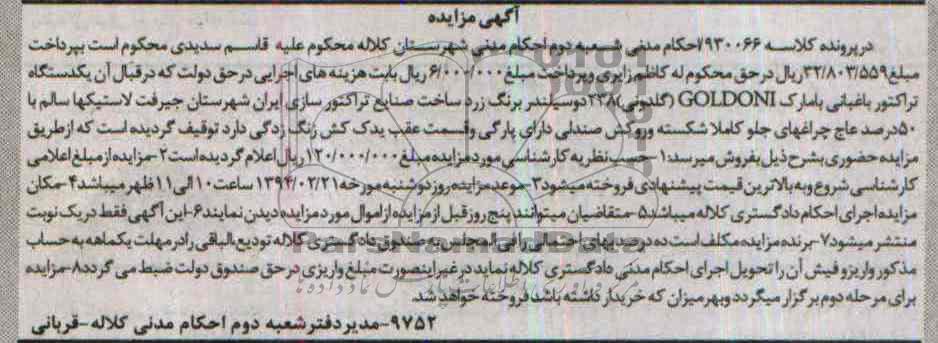 آگهی مزایده
درپرونده کلاسه ۹۳۰۰۶۶/احکام مدنی شعبه دوم احکام مدنی شهرستان کلاله محکوم علیه قاسم سدیدی محکوم است بپرداخت
مبلغ ۳۲/۸۰۳/۵۵۹ریال درحق محکوم له کاظم زابری وپرداخت مبلغ ۶/۰۰۰/۰۰۰ ریال بابت هزینه های اجرایی درحق دولت که درقبال آن یکدستگاه
تراکتور باغبانی بامارک GOLDONI (گلدونی)۲۳۸دوسیلندر برنگ زرد ساخت صنایع تراکتور سازی ایران شهرستان جیرفت لاستیکها سالم با
۵۰درصد عاج چراغهای جلو کاملا شکسته وروکش صندلی دارای پارگی وقسمت عقب یدک کش زنگ زدگی دارد توقیف گردیده است که ازطریق
مزایده حضوری بشرح ذیل بفروش میرسد:۱-حسب نظریه کارشناسی موردمزایده مبلغ ۱۲۰/۰۰۰/۰۰۰ریال اعلام گردیده است۲-مزایده از مبلغ اعلامی
کارشناسی شروع وبه بالاترین قیمت پیشنهادی فروخته میشود۳-موعدمزایده روز دوشنبه مورخه ۱۳۹۴/۰۲/۲۱ ساعت ۱۰الی ۱۱ظهر میباشد۴-مکان
مزایده اجرای احکام دادگستری کلاله میباشد۵-متقاضیان میتوانند پنج روز قبل از مزایده ازاموال مورد مزایده دیدن نمایند۶-این آگهی فقط دریک نوبت
منتشر میشود۷-برنده مزایده مکلف است ده درصد بهای احتمالی را فی المجلس به صندوق دادگستری کلاله تودیع،الباقی رادر مهلت یکماهه به حساب
مذکور واریز و فیش آن را تحویل اجرای احکام مدنی دادگستری کلاله نماید درغیراینصورت مبلغ واریزی در حق صندوق دولت ضبط می گردد۸-مزایده
برای مرحله دوم برگزار میگردد وبهر میزان که خریدار داشته باشد فروخته خواهد شد.
۹۷۵۲-مدیر دفترشعبه دوم احکام مدنی کلاله-قربانی
ParsNamadData